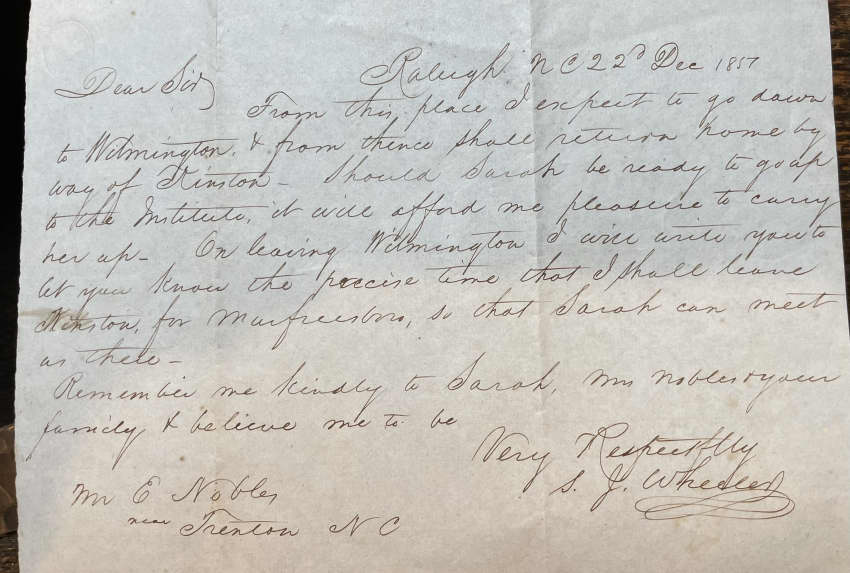 Raleigh N C 22d Dec 1857
Dear Sir
From this place I expect to go down
to Wilmington & from thence shall return home by
way of Kinston - Should Sarah be ready to go up
to the Institute, it will afford me pleasure to carry
her up - On leaving Wilmington I will write you to
let you know the precise time that I shall leave
Kinston, for Murfreesboro, so that Sarah can meet
us there -
Remember me kindly to Sarah, Mrs Nobles & your
family & believe me to be
Very Respectflly
S. J. Wheeler
Mr E Nobles
near Trenton N C